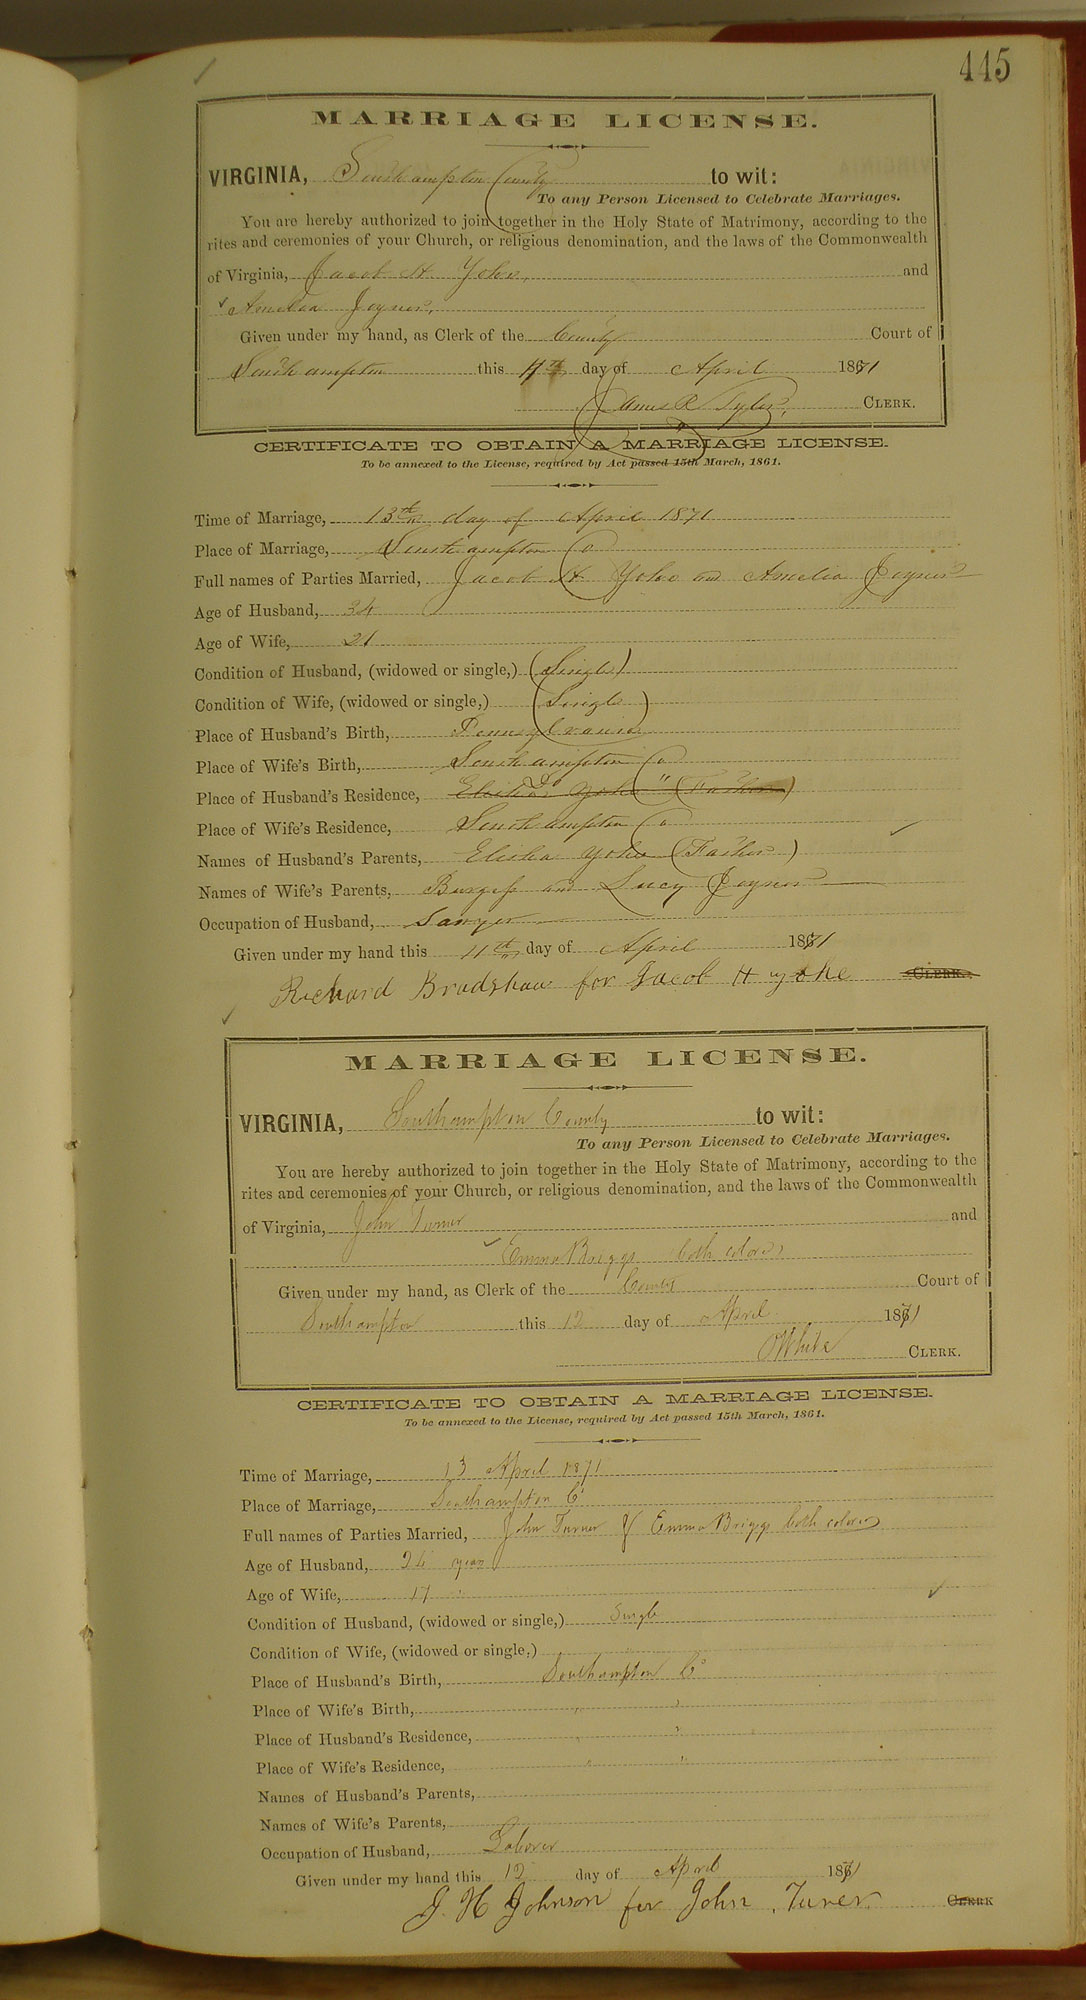 445
MARRIAGE LICENSE.
VIRGINIA, Southampton County to wit:
To any Person Licensed to Celebrate Marriages.
You are hereby authorized to join together in the Holy State of Matrimony, according to the
rites and ceremonies of your Church, or religious denomination, and the laws of the Commonwealth
of Virginia, Jacob H Yohe, and
Amelia Joyner,
Given under my hand, as Clerk of the County Court of
Southampton this 11th day of April 1871
James R Tyler, CLERK.
CERTIFICATE TO OBTAIN A MARRIAGE LICENSE.
To be annexed to the License, required by Act passed 15th March, 1861.
Time of Marriage, 13th day of April 1871
Place of Marriage, Southampton Co
Full names of Parties Married, Jacob H Yohe and Amelia Joyner
Age of Husband, 34
Age of Wife, 21
Condition of Husband, (widowed or single,) (Single)
Condition of Wife, (widowed or single,) (Single)
Place of Husband's Birth, Pennsylvania
Place of Wife's Birth, Southampton Co
Place of Husband's Residence, Elisha Yohe (Father) Do "
Place of Wife's Residence, Southampton Co
Names of Husband's Parents, Elisha Yohe (Father)
Names of Wife's Parents, Burgess and Lucy Joyner
Occupation of Husband, Sawyer
Given under my hand this 11th day of April 1871
Richard Bradshaw for Jacob H yohe CLERK.
MARRIAGE LICENSE.
VIRGINIA, Southampton County to wit:
To any Person Licensed to Celebrate Marriages.
You are hereby authorized to join together in the Holy State of Matrimony, according to the
rites and ceremonies of your Church, or religious denomination, and the laws of the Commonwealth
of Virginia, John Turner and
Emma Briggs both colored
Given under my hand, as Clerk of the County Court of
Southampton this 12 day of April 1871
White CLERK.
CERTIFICATE TO OBTAIN A MARRIAGE LICENSE.
To be annexed to the License, required by Act passed 15th March, 1861.
Time of Marriage, 13 April 1871
Place of Marriage, Southampton Co
Full names of Parties Married, John Turner & Emma Briggs both colored
Age of Husband, 24 years
Age of Wife, 17 "
Condition of Husband, (widowed or single,) Single
Condition of Wife, (widowed or single,)
Place of Husband's Birth, Southampton Co
Place of Wife's Birth, " "
Place of Husband's Residence, " "
Place of Wife's Residence, " "
Names of Husband's Parents,
Names of Wife's Parents,
Occupation of Husband, Laborer
Given under my hand this 12 day of April 1871
J. H Johnson for John Turner CLERK